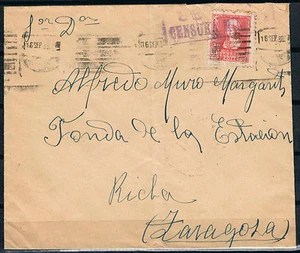 CENSURA
Alfredo Muro Margarit
Fonda de la Estación
Ricla
(Zaragoza)